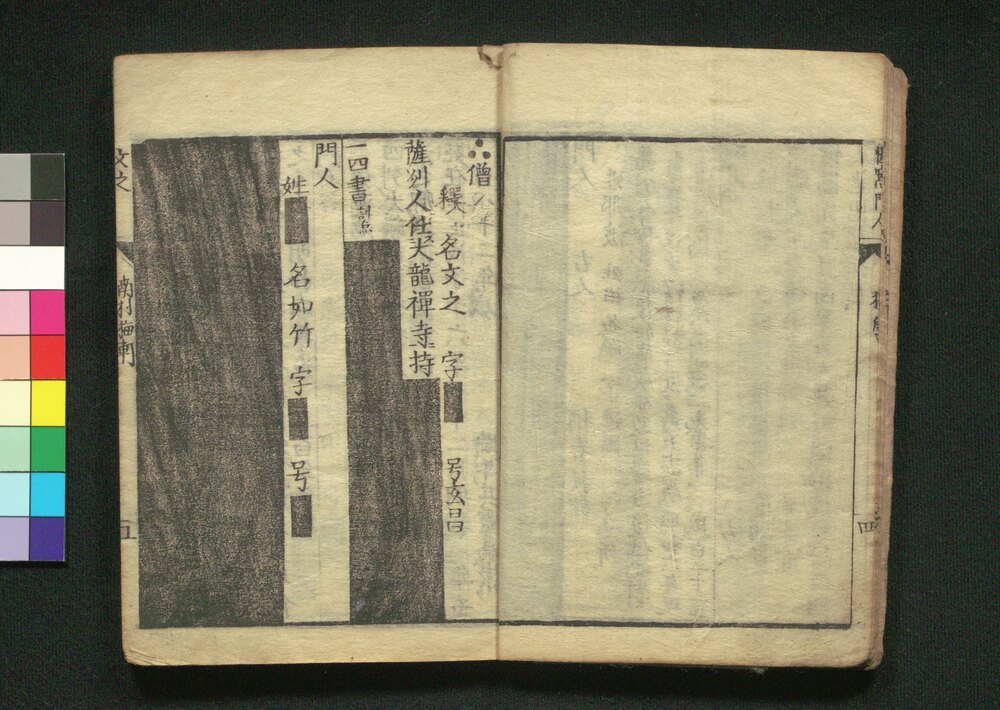 僧
釋 名文之 字 号玄昌
薩州人仕大龍禪寺持
一四書點
門人
姓 名如竹 字 号
文之
五
門人
四